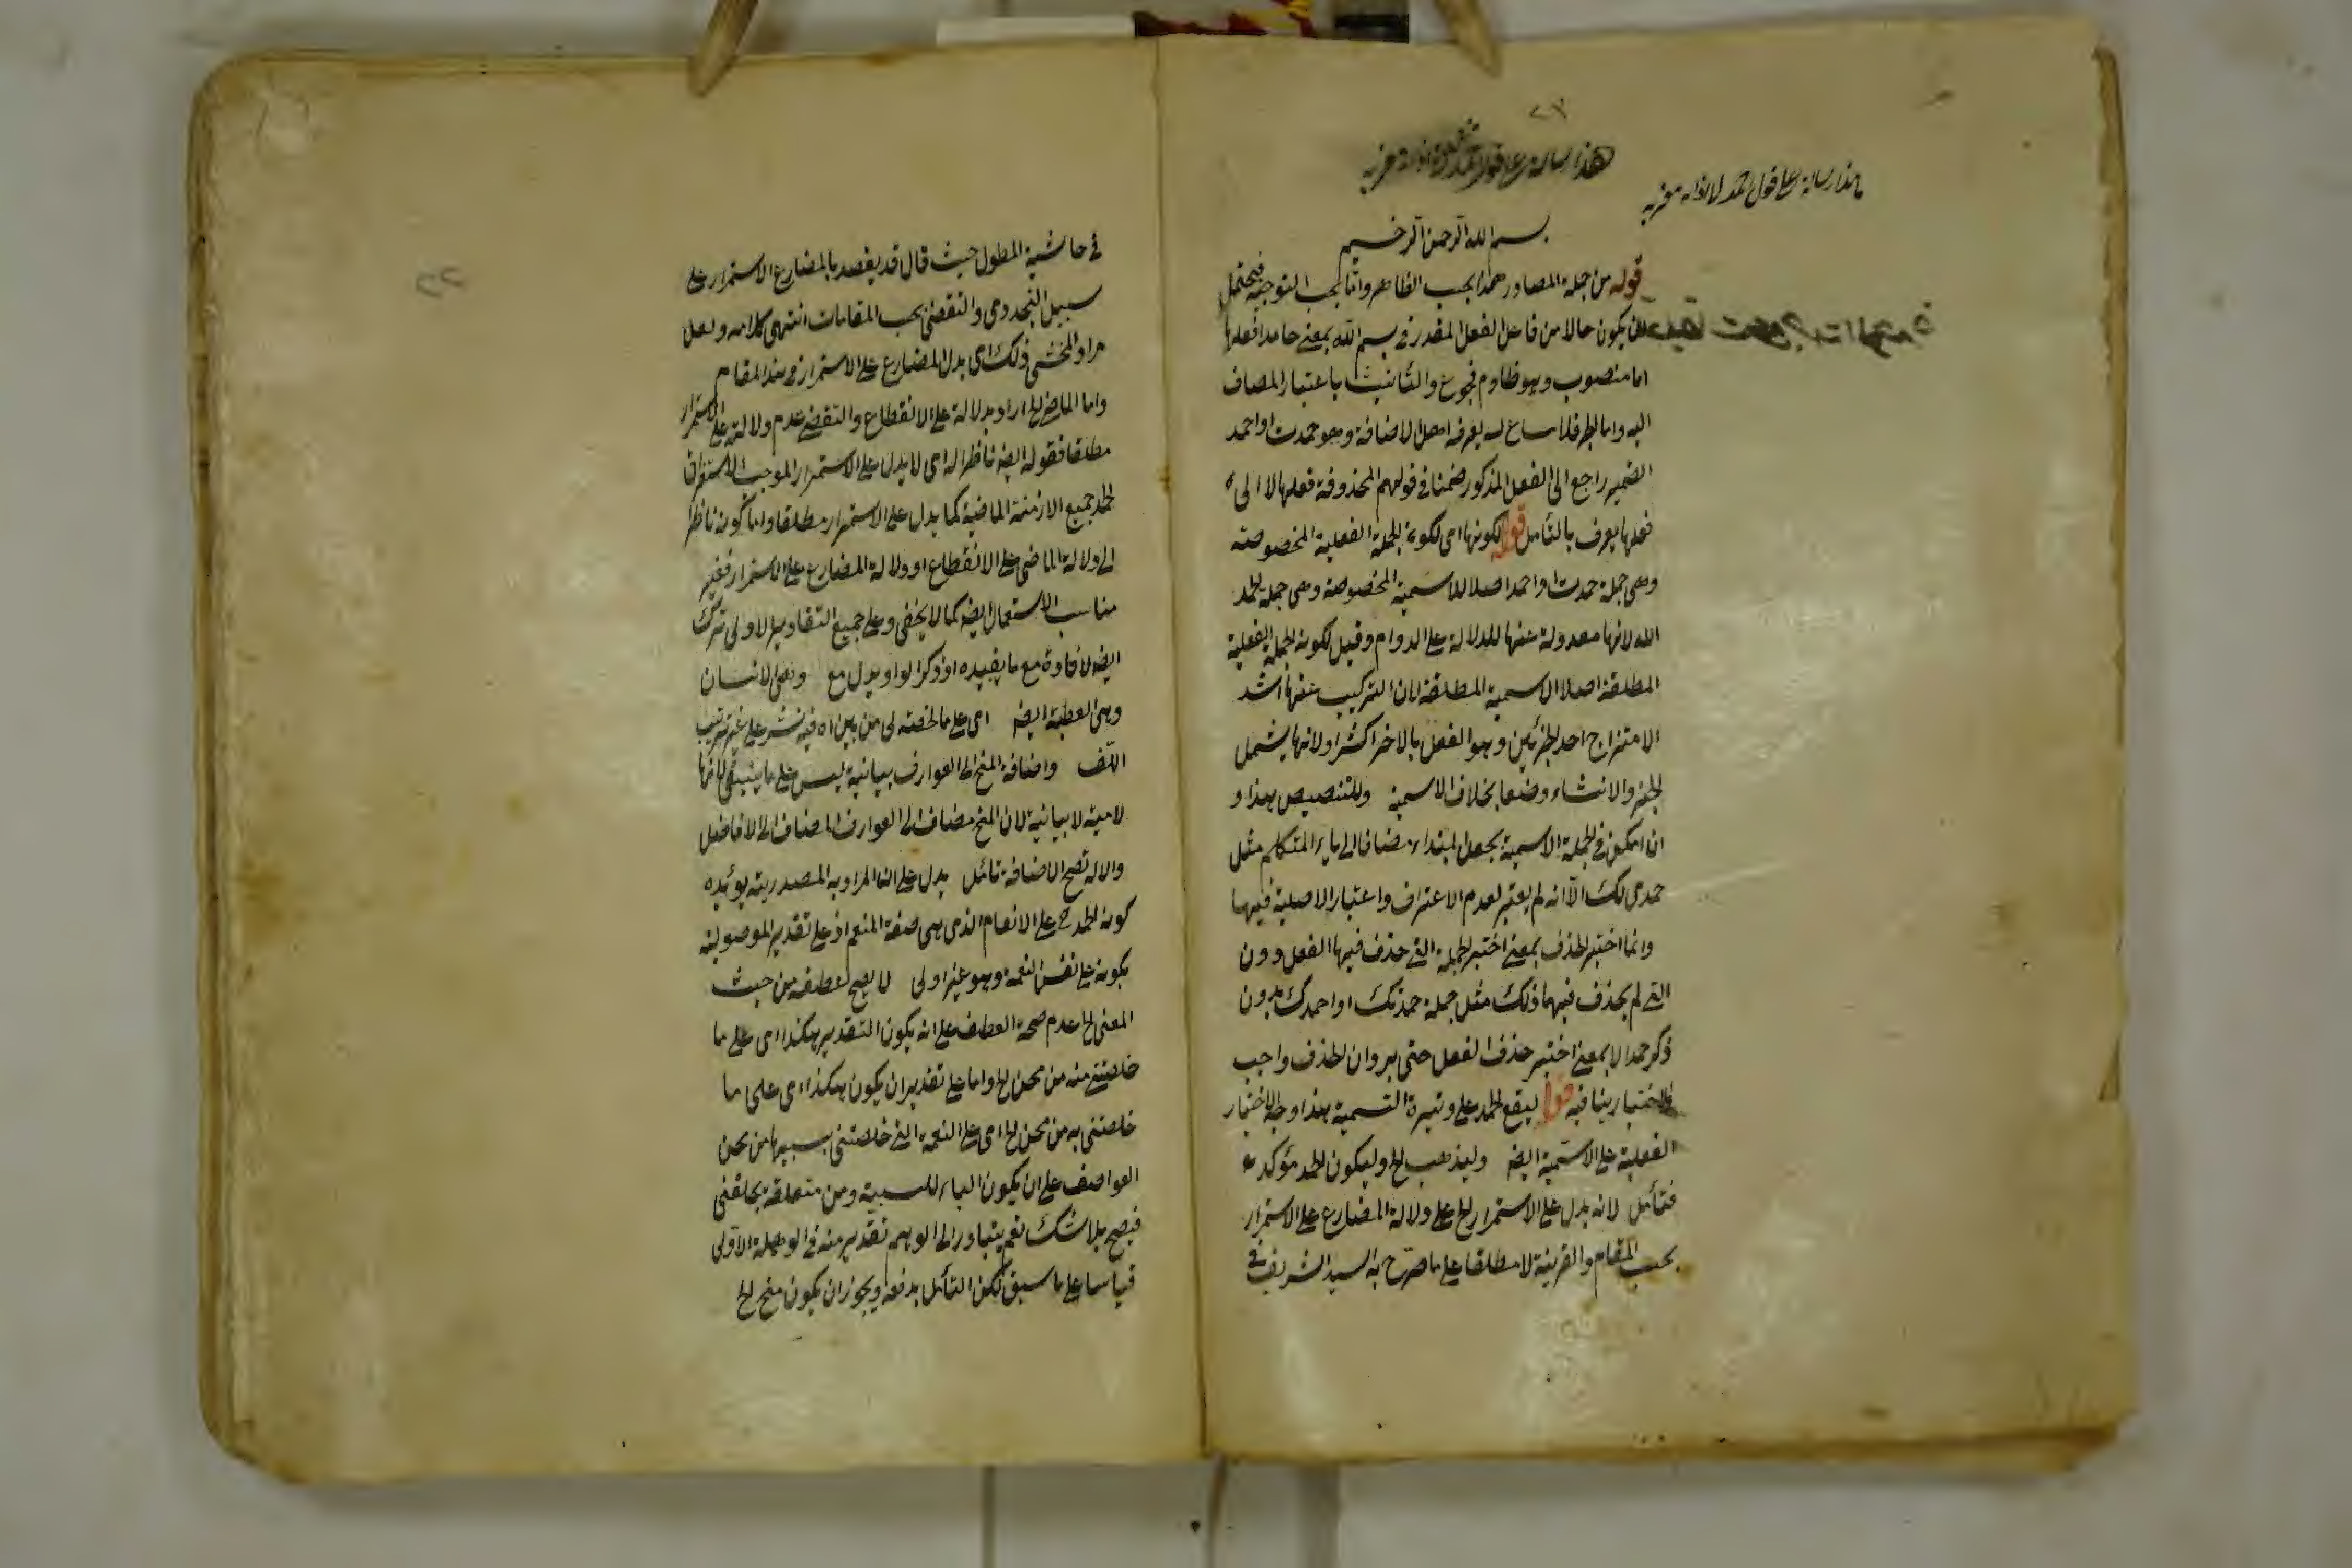 بسم الله الرحمن الرحيم
قوله من جملة المصادر هذا بحسب الظاهر واما بحسب التوجيه فيحتمل
ان يكون حالا من فاعل الفعل المقدر في بسم الله بمعنى حامدا فعلها
اما منصوب وهو ظ او مرفوع والتأنيث باعتبار المضاف
اليه واما الجر فلا مساغ له يعرفه اهل الاضافة وهو حمدت او احمد
الضمير راجع الى الفعل المذكور ضمنا في قولهم المحذوفة فعلها لا الى
فعلها يعرف بالتأمل قوله لكونها اى لكون الجملة الفعلية المخصوصة
وهى جملة حمدت او احمد اصلا للاسمية المخصوصة وهى جملة الحمد
لله لانها معدولة عنها للدلالة على الدوام وقيل لكون الجملة الفعلية
المطلقة اصلا الاسمية المطلقة لان التركيب عنها اشد
الامتزاج احد الجزئين وهو الفعل بالاخر اكثر او لانها يشمل
الخبر والانشاء وضعا بخلاف الاسمية وللتنصيص بهذا و
ان امكن في الجملة الاسمية بجعل المبتداء مضافا الى ياء المتكلم مثل
حمدى لك الا انه لم يعتبر لعدم الاعتراف واعتبار الاصلية فيها
وانما اختير الحذف بمعنى اختير الجملة التى حذف فيها الفعل دون
التى لم يحذف فيها ذلك مثل جملة حمدتك او احمدك بدون
ذكر حمدا لا بمعنى اختير حذف الفعل حتى يرد ان الحذف واجب
فالاختيار ينافيه قوله ليقع الحمد على وتيرة التسمية هذا وجه الاختيار
الفعلية على الاسمية ايضا وليذهب الخ وليكون الحمد مؤكدة
فتأمل لانه يدل على الاستمرار الخ على دلالة المضارع على الاستمرار
بحسب المقام والقرينة لا مطلقا على ما صرح به السيد الشريف في
في حاشية المطول حيث قال قد يقصد بالمضارع الاستمرار على
سبيل التجددى والتقضى بحسب المقامات انتهى كلامه ولعل
مراد المحشى ذلك اى يدل المضارع على الاستمرار في هذا المقام
واما الماضى الخ اراد بدلالة على الانقطاع والتقضى عدم دلالته على الاستمرار
مطلقا فقوله ايضا ناظر اله اى لا يدل على الاستمرار الموجب لاستغراق
الحمد جميع الازمنة الماضية كما يدل على الاستمرار مطلقا واما كونه ناظرا
الى دلالة الماضى على الانقطاع او دلالة المضارع على الاستمرار فغير
مناسب الاستعمال ايضا كما لا يخفى وعلى جميع التقادير الاولى ترك
ايضا لافادة مع ما يفيده او ذكر الواو بدل مع وهى لانسان
وهى العطية ايضا اى على ما خلصته لى من بين اه فيه نشر على غير ترتيب
اللف واضافة المنح الى العوارف بيانية ليس على ما ينبغى لانها
لامية لا بيانية لان المنح مضاف الى العوارف المضاف الى الافاضل
والا لا تصح الاضافة تأمل يدل على ان المراد به المصدرية يؤيده
كون الحمد ح على الانعام الذى هى صفة المنعم اذ على تقدير الموصولية
يكون على نفس النعمة وهو غير اولى لا يصح عطفه من حيث
المعنى الخ عدم صحة العطف على انه يكون التقدير هكذا اى على ما
خلصتنى منه من محن الخ واما على تقدير ان يكون هكذا اى على ما
خلصتنى به من محن الخ اى على النعمة التى خلصتنى بسببها من محن
العواصف على ان يكون الباء للسببية ومن متعلقة بخلصتنى
فيصح بلا شك نعم يتبادر الى الوهم تقدير منه في الوصلة الاولى
قياسا على ما سبق لكن التأمل يدفعه ويجوز ان يكون منح الخ